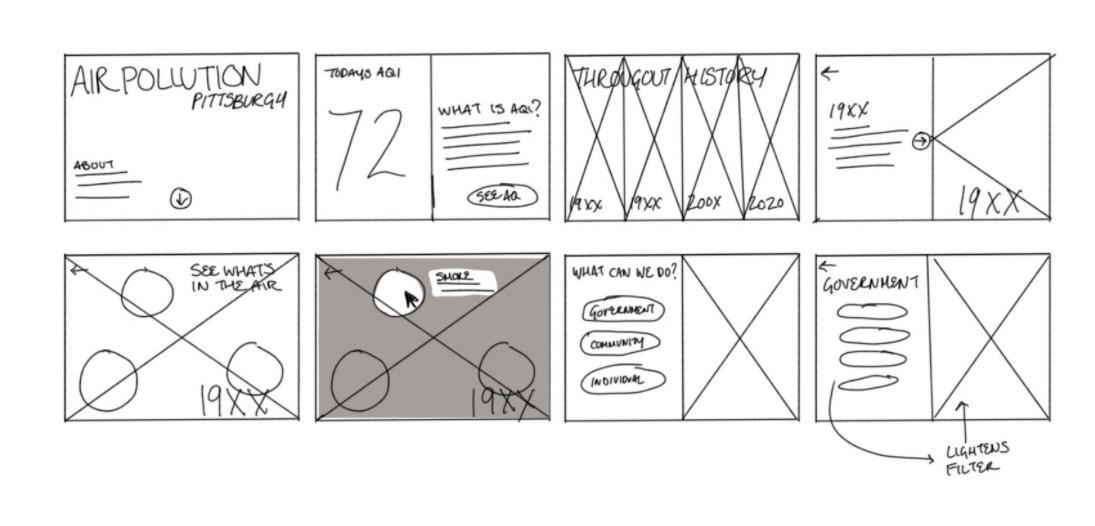 AIR POLLUTION
PITTSBURGH
ABOUT
TODAYS AQI
72
WHAT IS AQI?
SEE AQ
THROUGOUT HISTORY
19XX
19XX
200X
2020
19XX
19XX
SEE WHATS
IN THE AIR
19XX
SMOKE
19XX
WHAT CAN WE DO?
GOVERNMENT
COMMUNITY
INDIVIDUAL
GOVERNMENT
LIGHTENS
FILTER